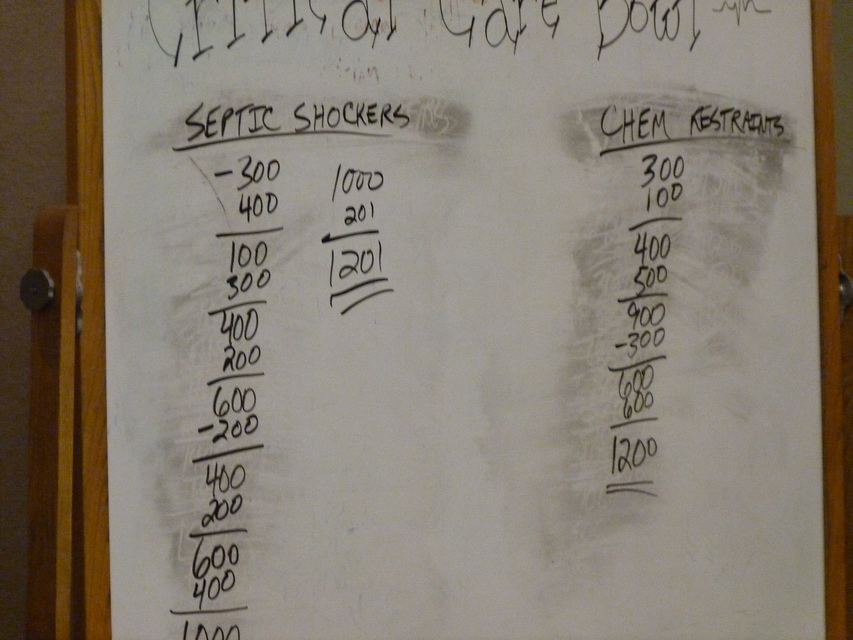 Critical Care Bowl
SEPTIC SHOCKERS
-300
400
100
300
400
200
600
-200
400
200
600
400
1000
1000
201
1201
CHEM RESTRAINTS
300
100
400
500
900
-300
600
600
1200